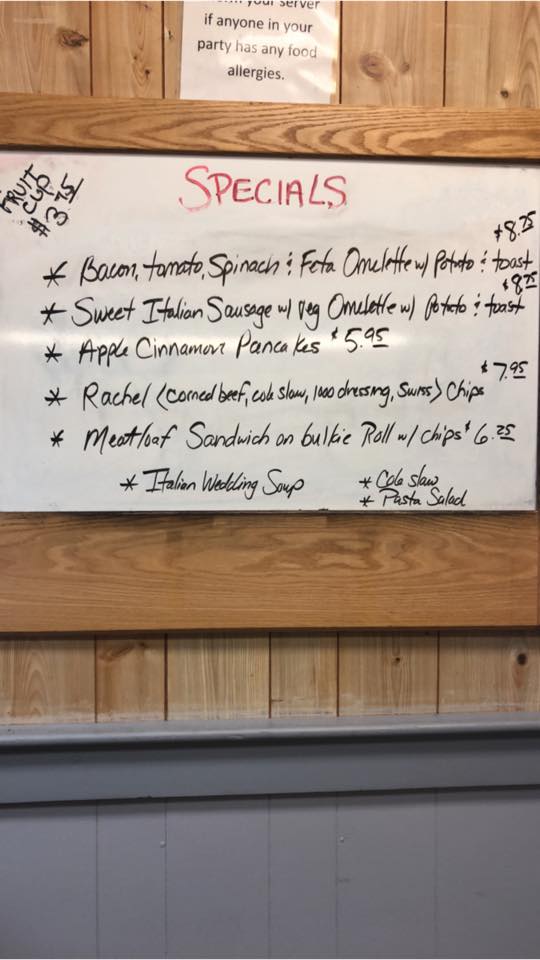 your server
if anyone in your
party has any food
allergies.
FRUIT
CUP
$3.75
SPECIALS
$8.75
* Bacon, tomato, Spinach & Feta Omelette w/ Potato & toast
$8.75
* Sweet Italian Sausage w/ Veg Omelette w/ Potato & toast
* Apple Cinnamon Pancakes $5.95
$7.95
* Rachel (corned beef, cole slaw, 1000 dressing, Swiss) Chips
* Meatloaf Sandwich on bulkie Roll w/ chips $6.25
* Italian Wedding Soup
* Cole slaw
* Pasta Salad